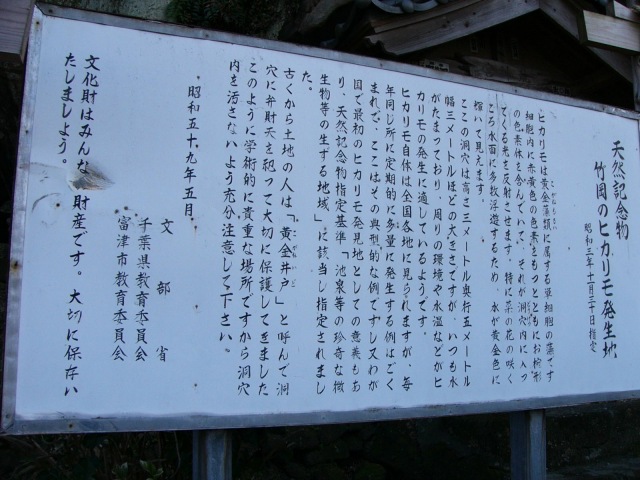 天然記念物
竹岡のヒカリモ発生地
昭和三年十一月三十日指定
ヒカリモは黄金藻類に属する単細胞の藻です
細胞内に赤黄色の色素をもつとともにお椀形
の色素体を含んでいて、それが洞穴内に入っ
てくる光を反射させます。特に菜の花の咲く
ころ水面に多数浮遊するため、水が黄金色に
輝いて見えます。
ここの洞穴は高さ三メートル奥行五メートル
幅三メートルほどの大きさですが、いつも水
がたまっており、周りの環境や水温などがヒ
カリモの発生に適しているようです。
ヒカリモ自体は全国各地に見られますが、毎
年同じ所に定期的に多量に発生する例はごく
まれで、ここはその典型的な例ですし又わが
国で最初のヒカリモ発見地としての意義もあ
り、天然記念物指定基準「池泉等の珍奇な微
生物等の生する地域」に該当し指定されまし
た。
古くから土地の人は「黄金井戸」と呼んで洞
穴に弁財天を祀って大切に保護してきました
このように学術的に貴重な場所ですから洞穴
内を活さないよう充分注意して下さい。
昭和五十九年五月
文部省
千葉県教育委員会
富津市教育委員会
文化財はみんな 財産です。大切に保存い
たしましょう。